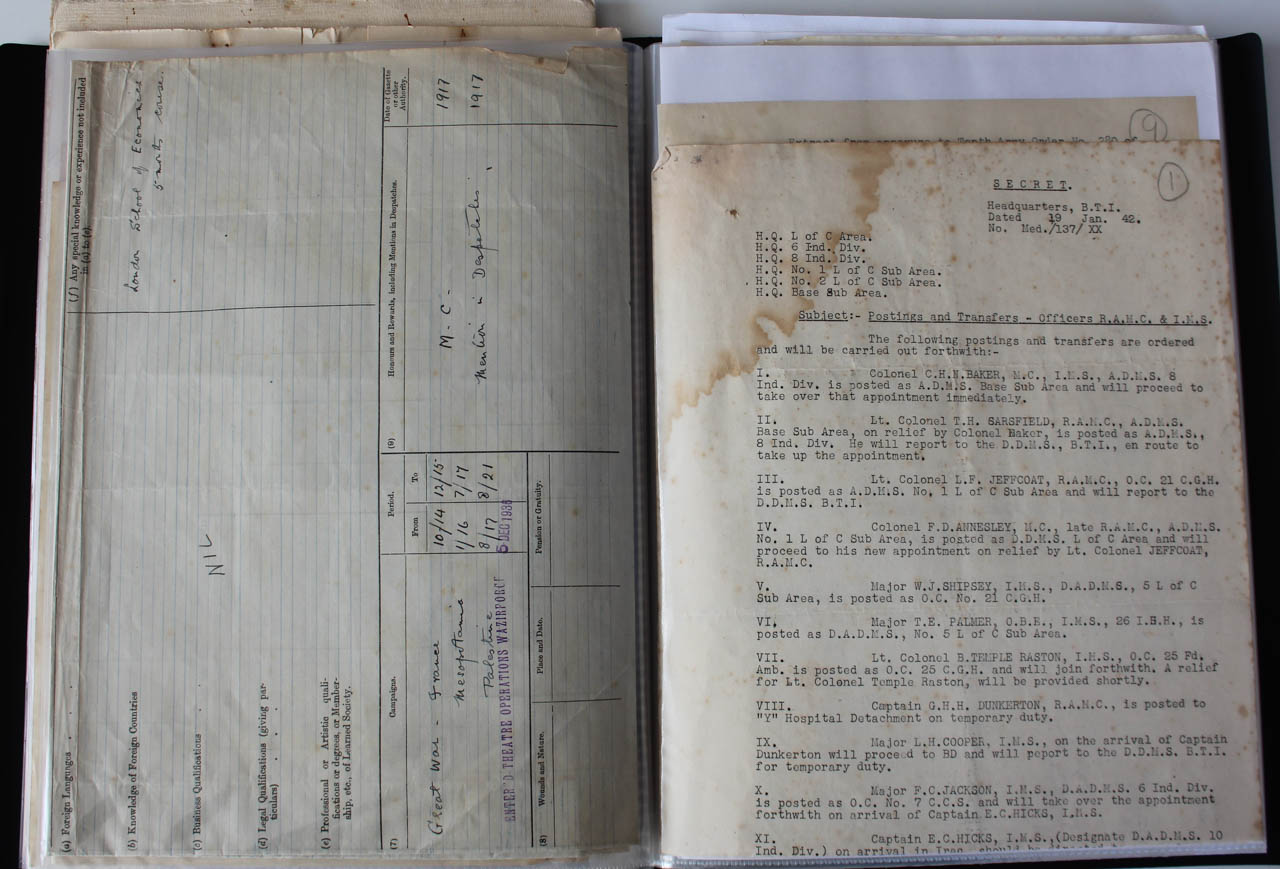 (a) Foreign Languages . . .
(b) Knowledge of Foreign Countries
(c) Business Qualifications . .
(d) Legal Qualifications (giving par-
ticulars) . . . .
(e) Professional or Artistic quali-
fications or degrees, or Member-
ship, etc., of Learned Society.
NIL
(f) Any special knowledge or experience not included
in (a) to (e).
London School of Economics
5 months course.
(7) Campaigns.
Period.
From To
Great War - France 10/14 12/15
Mesopotamia 1/16 7/17
Palestine 8/17 8/21
ENTER'D THEATRE OPERATIONS WAZIRFORCE 5 DEC 1938
(8) Wounds and Nature.
Place and Date.
Pension or Gratuity.
(9) Honours and Rewards, including Mentions in Despatches.
Date of Gazette
or other
Authority.
M - C - 1917
Mention in Despatches 1917
9
1
SECRET.
Headquarters, B.T.I.
Dated 19 Jan. 42.
No. Med./137/XX
H.Q. L of C Area.
H.Q. 6 Ind. Div.
H.Q. 8 Ind. Div.
H.Q. No. 1 L of C Sub Area.
H.Q. No. 2 L of C Sub Area.
H.Q. Base Sub Area.
Subject:- Postings and Transfers - Officers R.A.M.C. & I.M.S.
The following postings and transfers are ordered
and will be carried out forthwith:-
I. Colonel C.H.N.BAKER, M.C., I.M.S., A.D.M.S. 8
Ind. Div. is posted as A.D.M.S. Base Sub Area and will proceed to
take over that appointment immediately.
II. Lt. Colonel T.H. SARSFIELD, R.A.M.C., A.D.M.S.
Base Sub Area, on relief by Colonel Baker, is posted as A.D.M.S.,
8 Ind. Div. He will report to the D.D.M.S., B.T.I., en route to
take up the appointment.
III. Lt. Colonel L.F. JEFFCOAT, R.A.M.C., O.C. 21 C.G.H.
is posted as A.D.M.S. No. 1 L of C Sub Area and will report to the
D.D.M.S. B.T.I.
IV. Colonel F.D.ANNESLEY, M.C., late R.A.M.C., A.D.M.S.
No. 1 L of C Sub Area, is posted as D.D.M.S. L of C Area and will
proceed to his new appointment on relief by Lt. Colonel JEFFCOAT,
R.A.M.C.
V. Major W.J.SHIPSEY, I.M.S., D.A.D.M.S., 5 L of C
Sub Area, is posted as O.C. No. 21 C.G.H.
VI. Major T.E. PALMER, O.B.E., I.M.S., 26 I.B.H., is
posted as D.A.D.M.S., No. 5 L of C Sub Area.
VII. Lt. Colonel B.TEMPLE RASTON, I.M.S., O.C. 25 Fd.
Amb. is posted as O.C. 25 C.G.H. and will join forthwith. A relief
for Lt. Colonel Temple Raston, will be provided shortly.
VIII. Captain G.H.H. DUNKERTON, R.A.M.C., is posted to
"Y" Hospital Detachment on temporary duty.
IX. Major L.H.COOPER, I.M.S., on the arrival of Captain
Dunkerton will proceed to BD and will report to the D.D.M.S. B.T.I.
for temporary duty.
X. Major F.C.JACKSON, I.M.S., D.A.D.M.S. 6 Ind. Div.
is posted as O.C. No. 7 C.C.S. and will take over the appointment
forthwith on arrival of Captain E.C.HICKS, I.M.S.
XI. Captain E.C.HICKS, I.M.S.,(Designate D.A.D.M.S. 10
Ind. Div.) on arrival in Iraq, should be